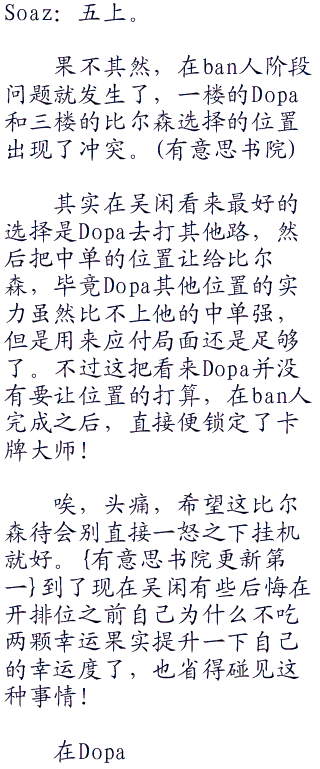 Soaz：五上。
果不其然，在ban人阶段
问题就发生了，一楼的Dopa
和三楼的比尔森选择的位置
出现了冲突。(有意思书院)
其实在吴闲看来最好的
选择是Dopa去打其他路，然
后把中单的位置让给比尔
森，毕竟Dopa其他位置的实
力虽然比不上他的中单强，
但是用来应付局面还是足够
了。不过这把看来Dopa并没
有要让位置的打算，在ban人
完成之后，直接便锁定了卡
牌大师！
唉，头痛，希望这比尔
森待会别直接一怒之下挂机
就好。{有意思书院更新第
一}到了现在吴闲有些后悔在
开排位之前自己为什么不吃
两颗幸运果实提升一下自己
的幸运度了，也省得碰见这
种事情！
在Dopa